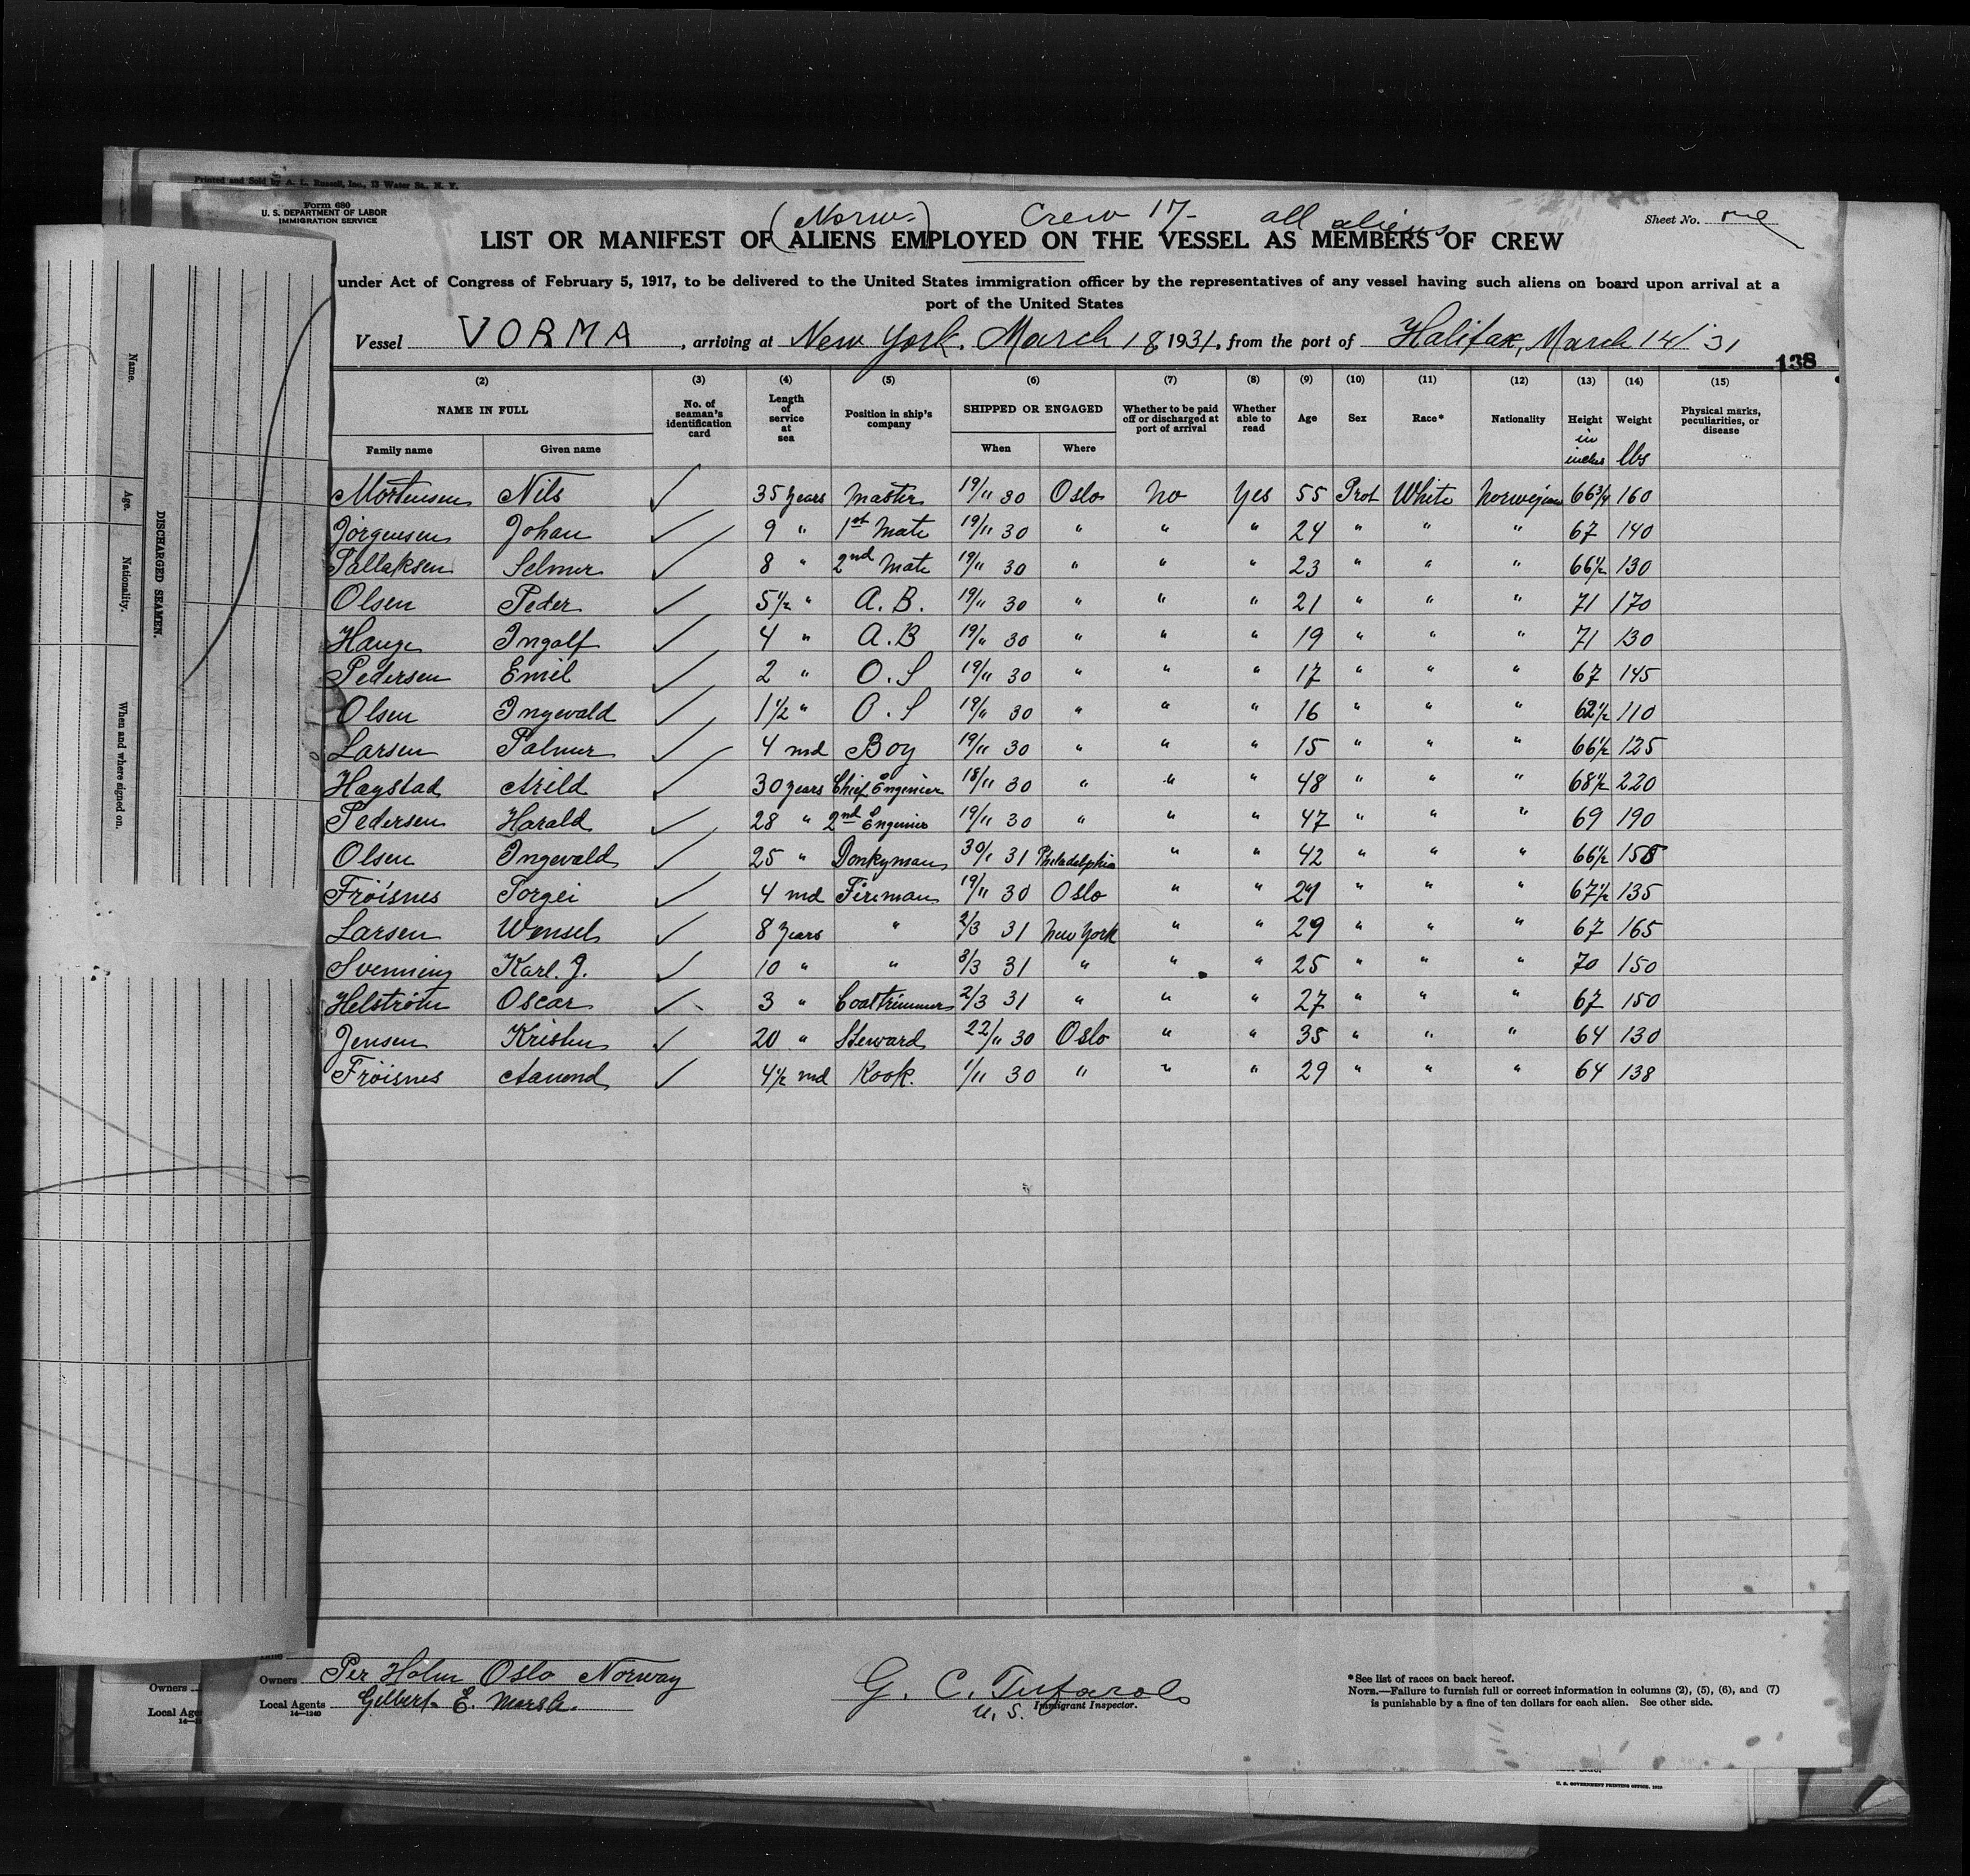 Printed and Sold by A. L. Russell, Inc., 12 Water St., N. Y.
Form 680
U. S. DEPARTMENT OF LABOR
IMMIGRATION SERVICE
(Norw.) Crew 17- all aliens
Sheet No.
LIST OR MANIFEST OF ALIENS EMPLOYED ON THE VESSEL AS MEMBERS OF CREW
under Act of Congress of February 5, 1917, to be delivered to the United States immigration officer by the representatives of any vessel having such aliens on board upon arrival at a
port of the United States
Vessel VORMA, arriving at New York. March 18, 1931, from the port of Halifax, March 14/ 31
138
(2) (3) (4) (5) (6) (7) (8) (9) (10) (11) (12) (13) (14) (15)
NAME IN FULL No. of seaman's identification card Length of service at sea Position in ship's company SHIPPED OR ENGAGED Whether to be paid off or discharged at port of arrival Whether able to read Age Sex Race* Nationality Height in inches Weight lbs Physical marks, peculiarities, or disease
Family name Given name When Where
Mortensen Nils ✓ 35 years Master 19/11 30 Oslo No Yes 55 Prot White Norwegian 66 3/4 160
Jörgensen Johan ✓ 9 " 1st Mate 19/11 30 " " " 24 " " " 67 140
Tallaksen Selmer ✓ 8 " 2nd Mate 19/11 30 " " " 23 " " " 66 1/2 130
Olsen Peder ✓ 5 1/2 " A. B. 19/11 30 " " " 21 " " " 71 170
Hauge Ingolf ✓ 4 " A. B 19/11 30 " " " 19 " " " 71 130
Pedersen Emil ✓ 2 " O. S 19/11 30 " " " 17 " " " 67 145
Olsen Ingevald ✓ 1 1/2 " O. S 19/11 30 " " " 16 " " " 62 1/2 110
Larsen Palmer ✓ 4 md Boy 19/11 30 " " " 15 " " " 66 1/2 125
Haystad Arild ✓ 30 years Chief Engenier 18/11 30 " " " 48 " " " 68 1/2 220
Pedersen Harald ✓ 28 " 2nd Engenier 19/11 30 " " " 47 " " " 69 190
Olsen Ingevald ✓ 25 " Donkyman 30/1 31 Philadelphia " " 42 " " " 66 1/2 155
Fröisnes Torgei ✓ 4 md Fireman 19/11 30 Oslo " " 27 " " " 67 1/2 135
Larsen Wensel ✓ 8 years " 2/3 31 New York " " 29 " " " 67 165
Svenning Karl. J. ✓ 10 " " 3/3 31 " " " 25 " " " 70 150
Helström Oscar ✓ 3 " Coaltrimmer 2/3 31 " " " 27 " " " 67 150
Jensen Kristen ✓ 20 " Steward 22/11 30 Oslo " " 35 " " " 64 130
Fröisnes Aanond ✓ 4 1/2 md Kook. 1/11 30 " " " 29 " " " 64 138
Name.
Age.
Nationality.
When and where signed on.
DISCHARGED SEAMEN.
Owners Per Holm Oslo Norway
Local Agents Gilbert E. Marsh.
14—1240
G. C. Tufarolo
U. S. Immigrant Inspector.
*See list of races on back hereof.
NOTE.—Failure to furnish full or correct information in columns (2), (5), (6), and (7)
is punishable by a fine of ten dollars for each alien. See other side.
Owners
Local Age
U. S. GOVERNMENT PRINTING OFFICE.